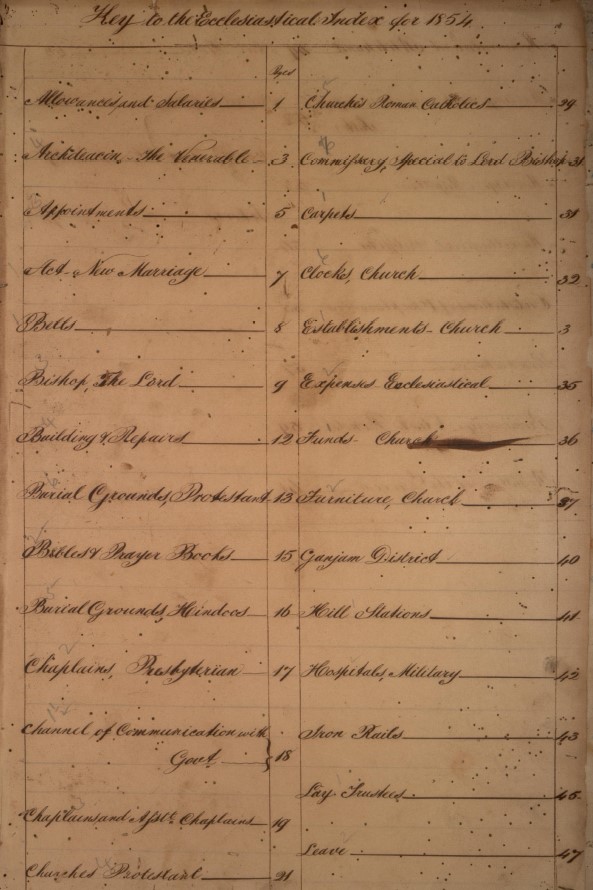 Key to the Ecclesiastical Index for 1854
Pages
Allowances and Salaries 1
Archdeacon, The Venerable 3
Appointments 5
Act - New Marriage 7
Bells 8
Bishop, The Lord 9
Building & Repairs 12
Burial Grounds, Protestant 13
Bibles & Prayer Books 15
Burial Grounds, Hindoos 16
Chaplains, Presbyterian 17
Channel of Communication with
Govt. 18
Chaplains and Asst. Chaplains 19
Churches Protestant 21
Churches Roman Catholics 29
Commissary, Special to Lord Bishop 31
Carpets 31
Clocks, Church 32
Establishments - Church 3
Expenses Ecclesiastical 35
Funds - Church 36
Furniture, Church 37
Ganjam District 40
Hill Stations 41
Hospitals, Military 42
Iron Rails 43
Lay Trustees 45
Leave 47